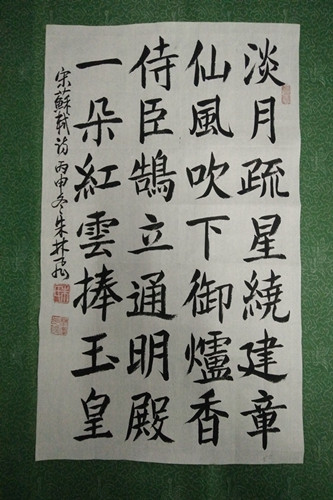 淡月疏星繞建章
仙風吹下御爐香
侍臣鵠立通明殿
一朵紅雲捧玉皇
宋蘇軾詩丙申冬朱林